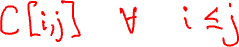 C[i,j] ∀ i ≤ j